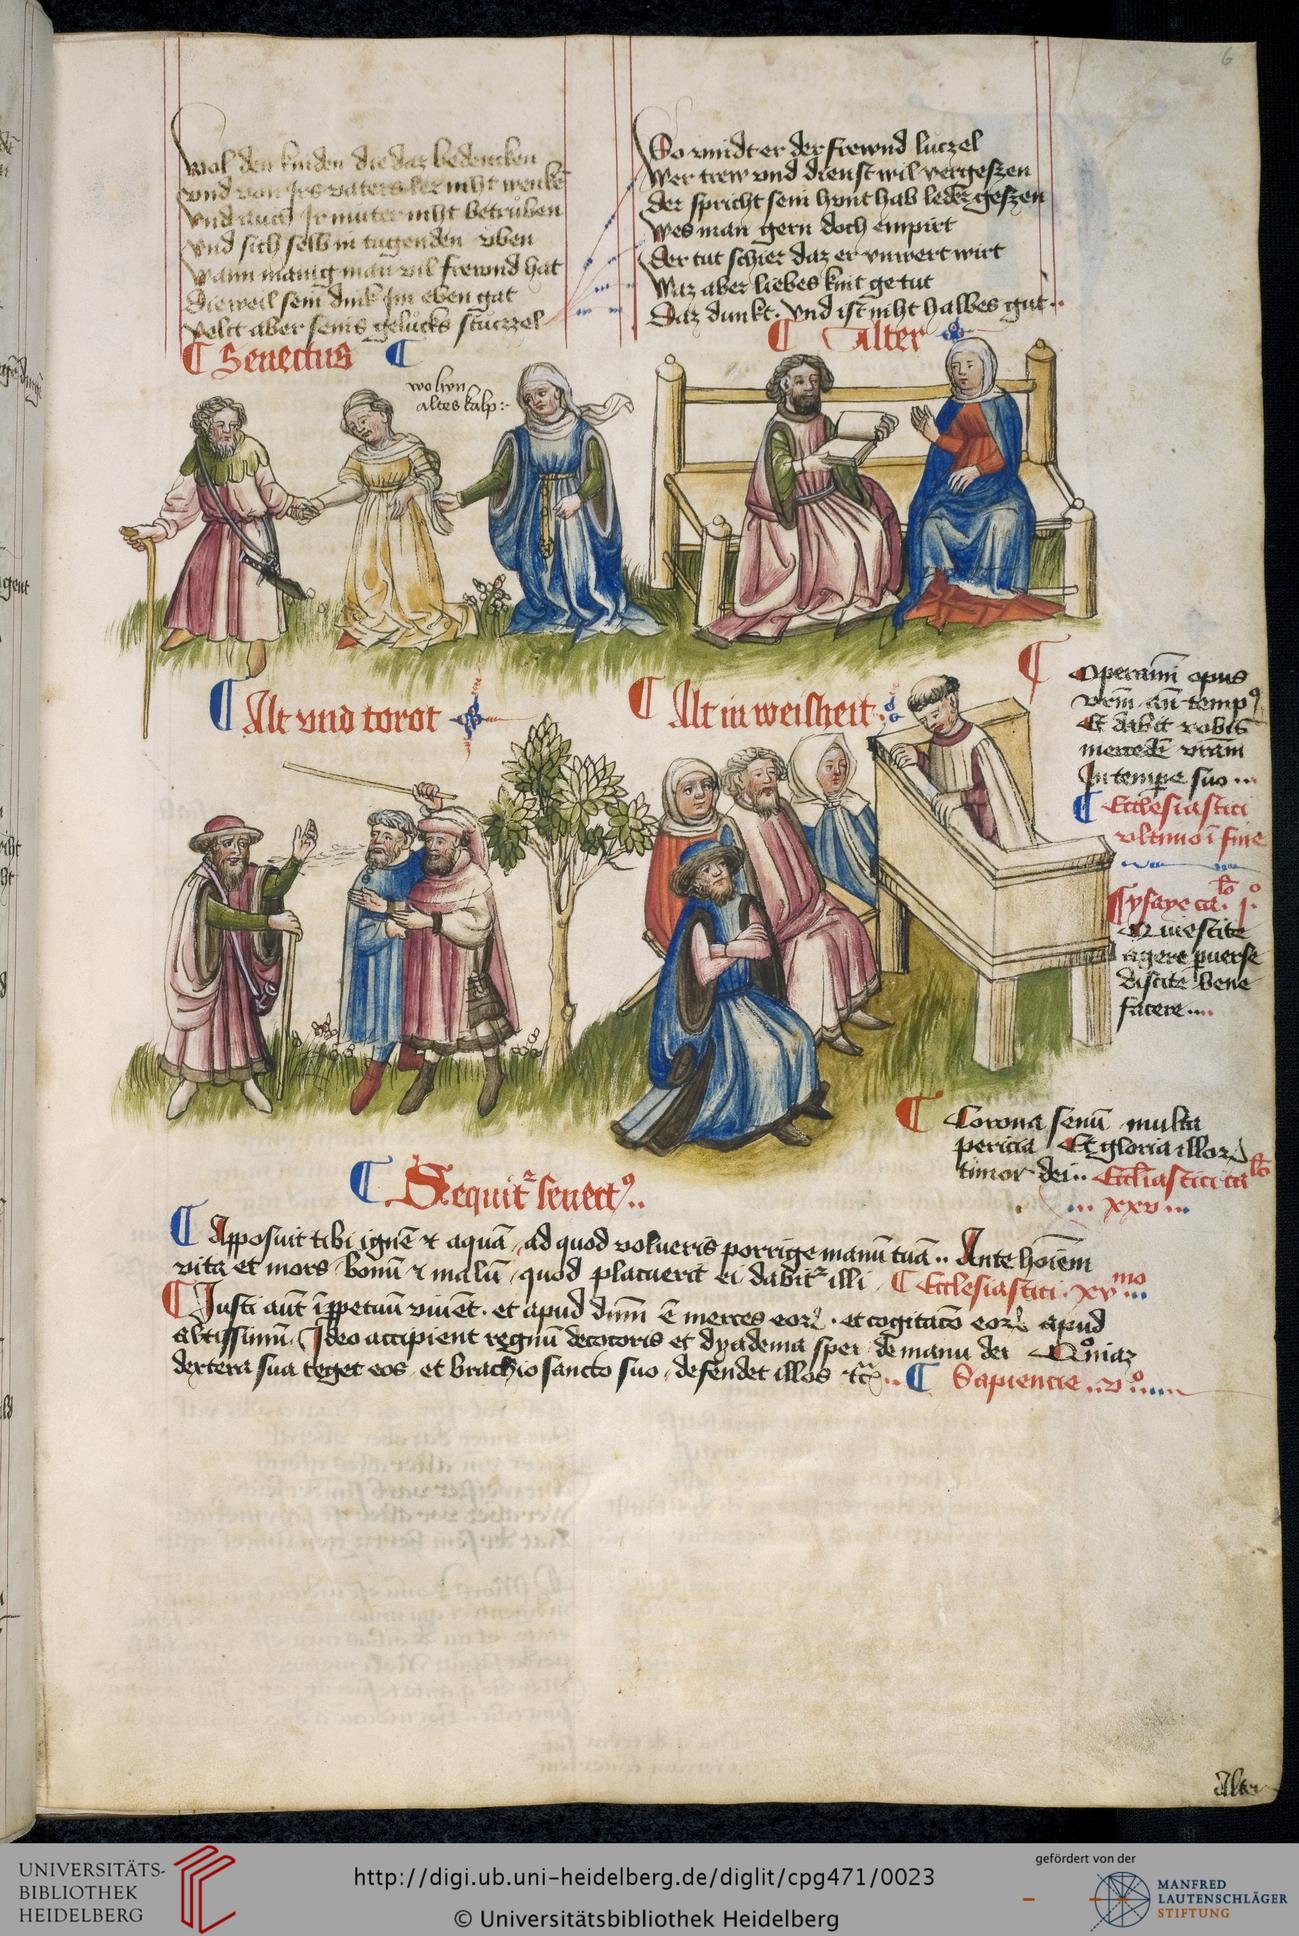 6
Wol den kinden die daz bedencken
Vnd von Irs vaters ler niht wencken
Vnd auch Ir muter niht betrüben
Vnd sich selb in tugenden üben
Wann manig man vil frewnd hat
Die weil sein dink Im eben gat
Velt aber seins gelücks stürzzel
So vindt er der frewnd lützel
Wer trew vnd dienst wil vergeszen
Der spricht sein hunt hab leder geszen
Wes man gern doch empirt
Der tut schier daz er vnwert wirt
Waz aber liebes kint getut
Daz dunkt. Vnd ist niht halbes gut..
Senectus
Alter
wol hyn
altes kalp:-
Alt vnd torot
Alt in weisheit
Operamini opus
vr̄m an̄ temp9
Et dabit vobis
mercedē vrām
In tempe suo...
Ecclesiastici
vltimo ī fine
Ysaye ca.lo j.o
Quiescite
agere puerse
discite bene
facere....
Corona senū multa
pericia Et gloria illor
timor dei.. Eccl̄iastici ca.lo
... xxv ...
Sequit᷑ senect9..
Apposuit tibi ignē et aquā, ad quod volueris porrige manū tuā.. Ante hoīem
vita et mors bonū et malū, quod placuerit ei dabit᷑ illi. Ecclesiastici. xv mo...
Justi aut̄ īppetuū viuēt. et apud dnm̄ ē merces eor. et cogitacō eor apud
altissimū. Ideo accipient regnū decoris et dyadema spei de manu dei Qm̄
dextera sua teget eos et brachio sancto suo, defendet illos etc... Sapiencie..v o....
Alter
UNIVERSITÄTS-
BIBLIOTHEK
HEIDELBERG
http://digi.ub.uni-heidelberg.de/diglit/cpg471/0023
© Universitätsbibliothek Heidelberg
gefördert von der
MANFRED
LAUTENSCHLÄGER
STIFTUNG